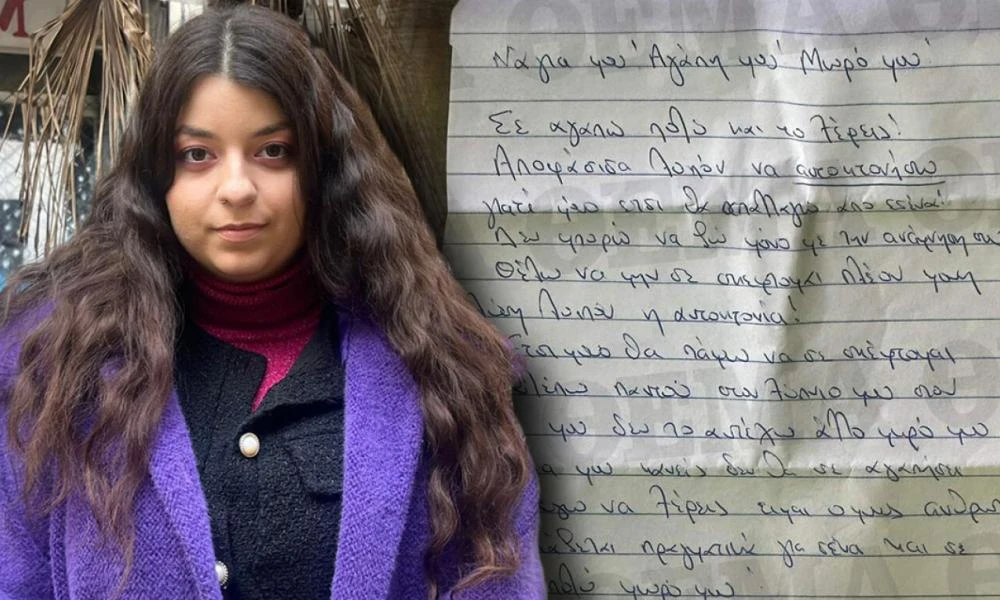 Νάγια μου! Αγάπη μου! Μωρό μου!
Σε αγαπώ πολύ και το ξέρεις!
Αποφάσισα λοιπόν να αυτοκτονήσω
γιατί μόνο έτσι θα απαλλαγώ από εσένα!
Δεν μπορώ να ζω μόνο με την ανάμνηση σου
Θέλω να μην σε σκέφτομαι πλέον
λύση λοιπόν η αυτοκτονία!
Έτσι μόνο θα πάψω να σε σκέφτομαι
παντού στο ξύπνιο μου στον
μου δεν το αντέχω άλλο μωρό μου
μου κανείς δεν θα σε αγαπήσει
να ξέρεις είμαι ο μόνος
πραγματικά για σένα και σε
πολύ μωρό μου!